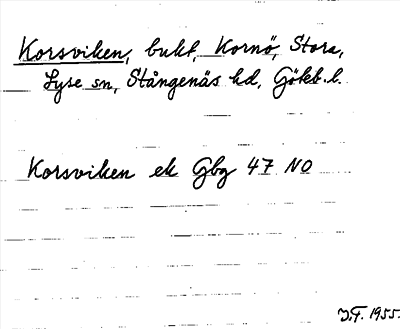 Korsviken, bukt, Kornö, Stora,
Lyse sn, Stångenäs hd, Göteb. l.
Korsviken ek Gbg 47 NO
J.F. 1955.